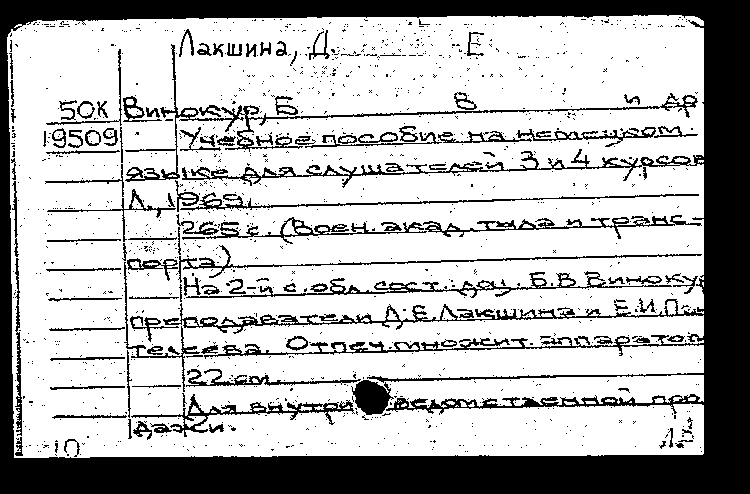 Лакшина, Д. Е
50К Винокур, Б В и др
19509 Учебное пособие на немецком
языке для слушателей 3 и 4 курсов
Л., 1969.
265 с. (Воен. акад. тыла и транс-
порта)
На 2-й с. обл. сост.: доц. Б.В Винокур
преподаватели Д.Е. Лакшина и Е.И.
телеева. Отпеч. множит. аппаратом
22 см.
Для внутриведомственной про
дажи.
10